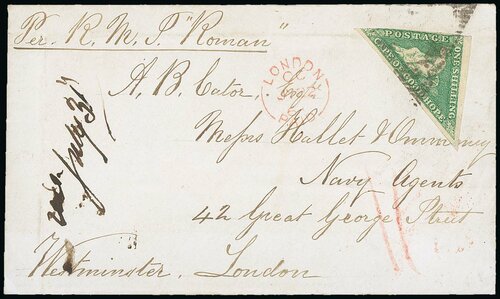 Per R. M. S "Roman"
POSTAGE
CAPE OF GOOD HOPE
ONE SHILLING
LONDON
A. B. Cator Esqre
Messrs Hallet & Ommaney
Navy Agents
42 Great George Street
Westminster, London
July 31